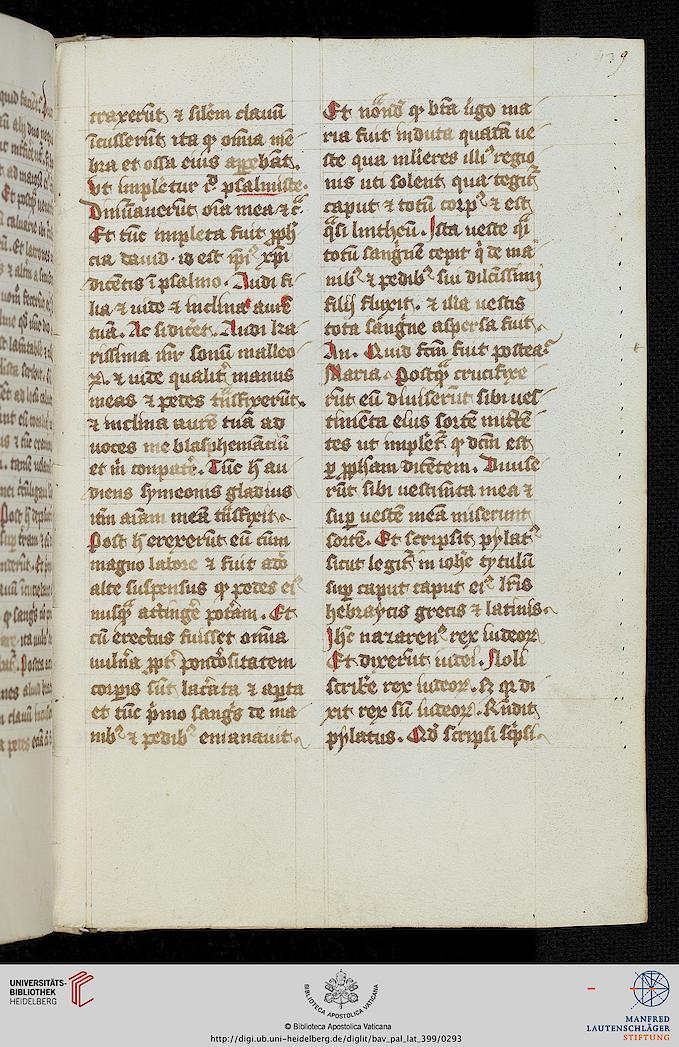 139
traxerūt ⁊ silēm clauū
īcusserūt ita ꝙ om̄ia mē
bra et ossa eius apꝑebāt.
Vt impletur ıͩ psalmiste.
Dinūauerūt oīa mea ⁊c̄
Et tūc impleta fuit ꝓph
cia dauid · id est ip̄iꝰ xp̄i
dicētis ī psalmo. Audi fi
lia ⁊ uide ⁊ inclina aurē
tuā. Ac si dicēt. Audi ka
rissima mr̄ sonū malleo
ꝝ. ⁊ uide qualit᷑ manus
meas ⁊ pedes tͥsfixerūt.
⁊ inclina aurē tuā ad
uoces me blasphemātiū
et m̄ conpatē. Tūc h̄ au
diens symeonis gladius
aīam meā tͥsfixit.
Post h̄ erexerūt eū cūm
magno labore ⁊ fuit adō
alte suspensus ꝙ pedes eiꝰ
nusqͣ attingē potāı. Et
cū erectus fuisset om̄ia
uuln̄a ꝓpt᷑ pondōsitatem
corpīs sūt lac̄ata ⁊ apta
et tūc pͥmo sangͥs de ma
nibꝰ ⁊ pedibꝰ emanauit.
Et nōndͦ ꝙ bt̄a uͥgo ma
ria fuit induta quadā ue
ste qua mĺieres illiꝰ regio
nis uti solent qua tegit᷑
caput ⁊ totū corpꝰ ⁊ est
qͣsi lintheū. Ista ueste qͥ
totū sangͥnē cepit qͥ de ma
nibꝰ ⁊ pedibꝰ sui dilc̄issimi
filij fluxit. ⁊ illa uestis
tota sāgͥne aspersa fuit.
An. Quid fcm̄ fuit postea?
Maria. Postqͣ crucifixe
rūt eū diuiserūt sibi ues
timēta eius sortē mittē
tes ut implet᷑ ꝙ dcm̄ est
ꝑ ꝓpham dicētem. Diuise
rūt sibi uestimta mea ⁊
suꝑ uestē meā miserunt
sortē. Et scripsit pylatꝰ
sicut legit᷑ in ioh̄e tytulū
suꝑ caput caput eiꝰ lr̄is
hebraycis grecis ⁊ latinis.
Jhc nazarenꝰ rex iudeoꝝ
Et dixerūt iudei. Noli
scribe rex iudeoꝝ. Sꝫ qꝛ di
xit rex sū iudeoꝝ. Rn̄dit
pylatus. Qd̄ scripsi scͥpsi.
UNIVERSITÄTS-
BIBLIOTHEK
HEIDELBERG
BIBLIOTHECA APOSTOLICA VATICANA
© Biblioteca Apostolica Vaticana
http://digi.ub.uni-heidelberg.de/diglit/bav_pal_lat_399/0293
MANFRED
LAUTENSCHLÄGER
STIFTUNG